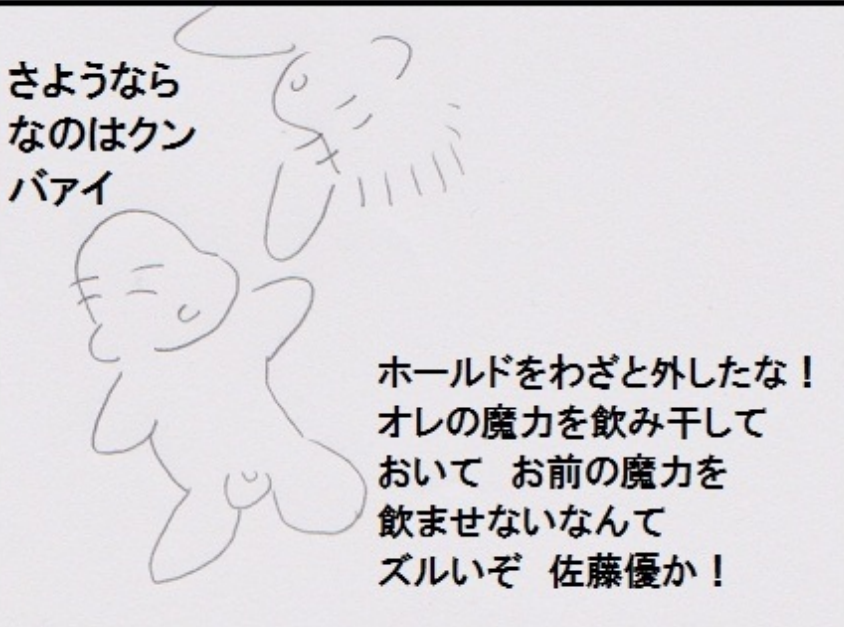 さようなら
なのはクン
バァイ
ホールドをわざと外したな！
オレの魔力を飲み干して
おいて　お前の魔力を
飲ませないなんて
ズルいぞ　佐藤優か！